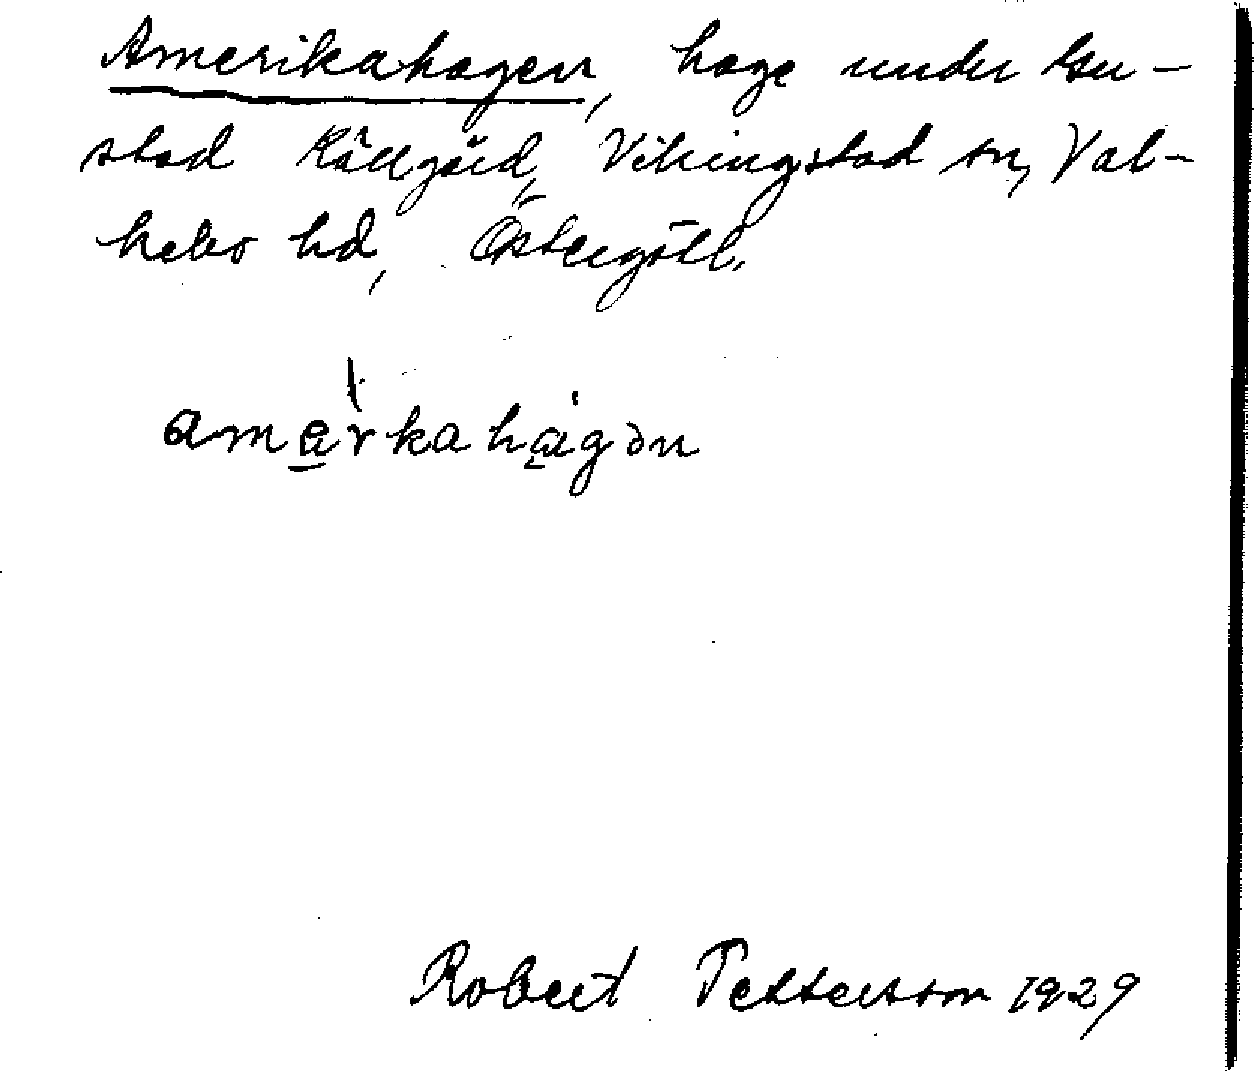 Amerikahagen, hage under Gu-
stad Källgård, Vikingstad sn, Val-
kebo hd, Östergötl.
amärkahagən
Robert Pettersson 1929